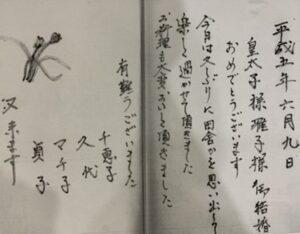 平成五年六月九日
皇太子様雅子様御結婚
おめでとうございます
今日は久しぶりに田舎を思い出し
楽しく過かせて頂きました
お料理も大変おいしく頂きました
有難うございました
千恵子
久代
マチ子
貞子
又来ます